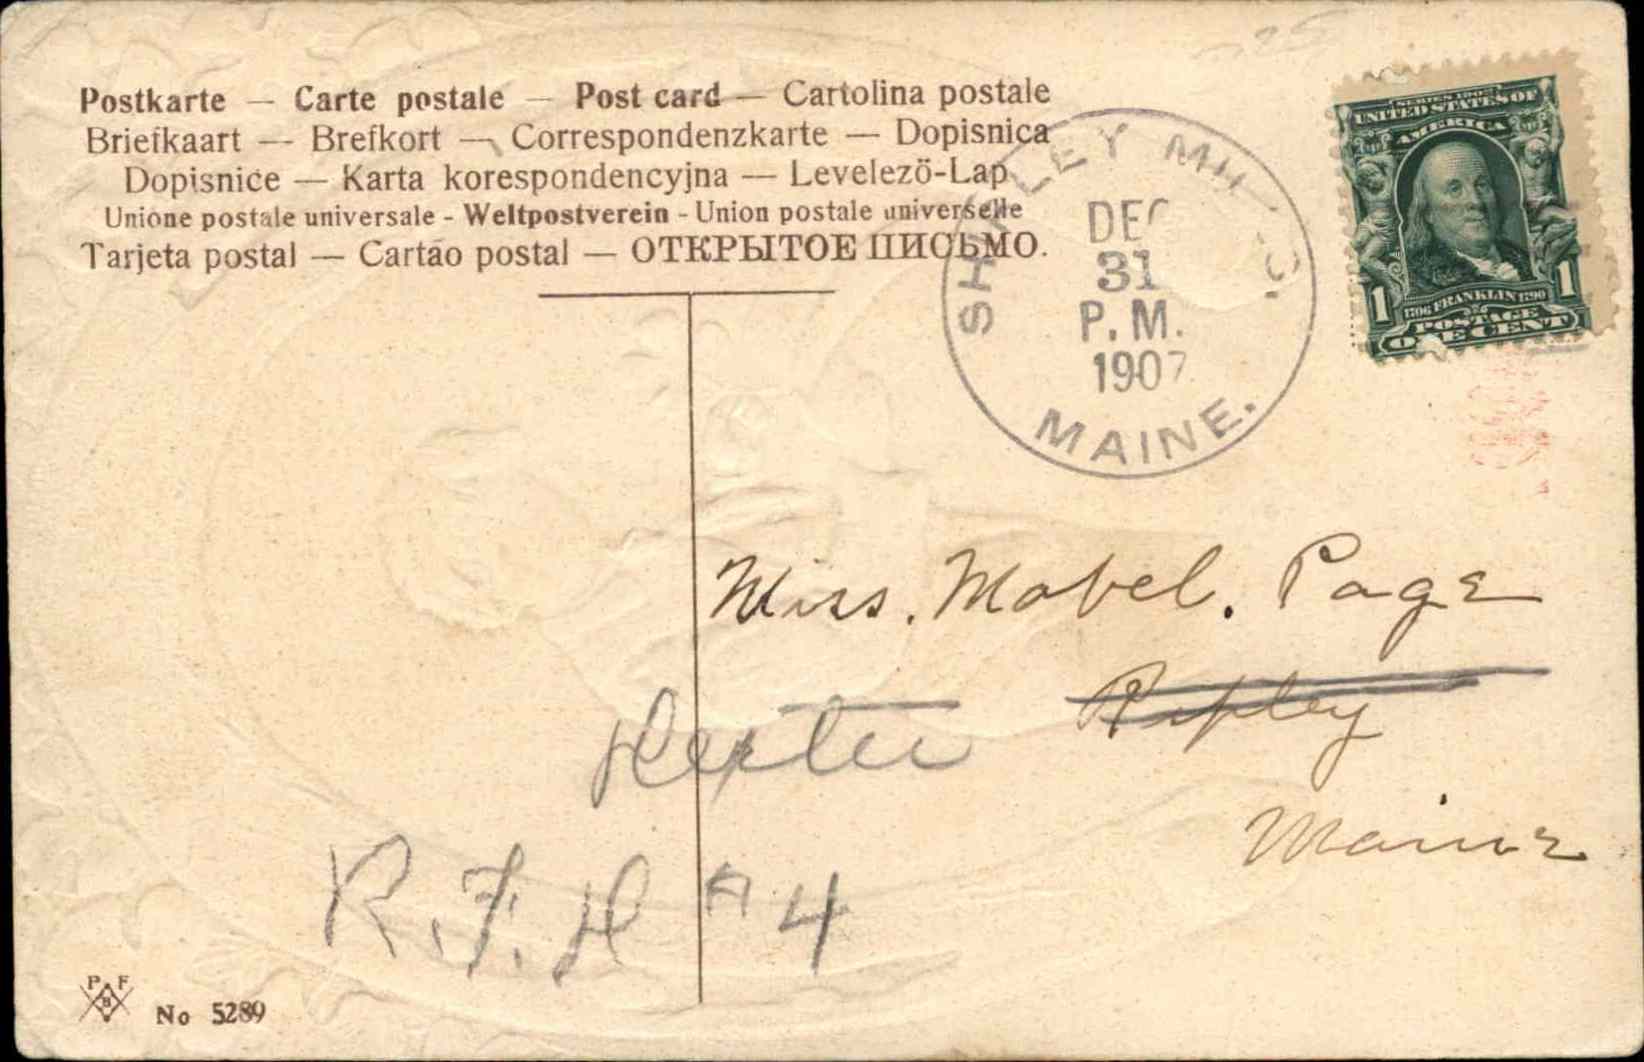 Postkarte — Carte postale — Post card — Cartolina postale
Briefkaart — Brefkort — Correspondenzkarte — Dopisnica
Dopisnice — Karta korespondencyjna — Levelezö-Lap
Unione postale universale - Weltpostverein - Union postale universelle
Tarjeta postal — Cartão postal — ОТКРЫТОЕ ПИСЬМО.
SHIRLEY MILLS.
DEC
31
P. M.
1907
MAINE.
SERIES 1902
UNITED STATES OF
AMERICA
1 1
1706 FRANKLIN 1790
POSTAGE
ONE CENT
Miss. Mabel. Page
Ripley
Dexter
Maine
R.F.D #4
P F
B
No 5289